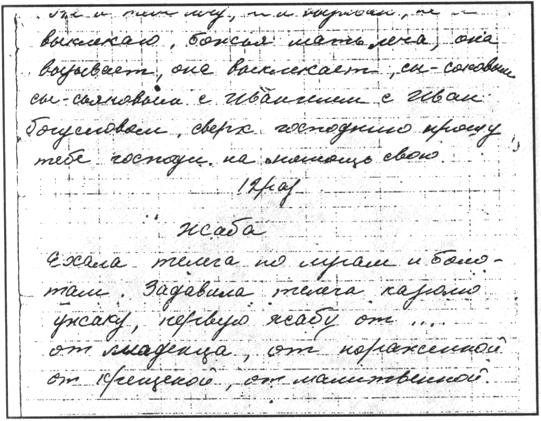 выклекаю, божья мать уеча, она
вызывает, она выклекает, сы-соковым
сы-сьяновым с Ивангелем с Иван
богусловом, сверк господнию прошу
тебе господи на помощь свою
12 раз
Жаба
Ехала телега по лугам и боло-
там. Задавила телега казюлю
ужаку, первую жабу от ...
от младенца, от пораженной
от крещеной, от малитвенной.